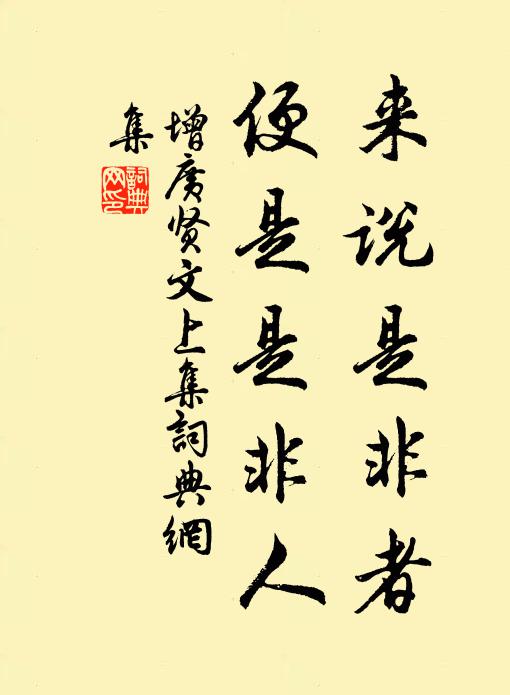 来说是非者
便是是非人
增广贤文上集詞典網
集
詞典网印